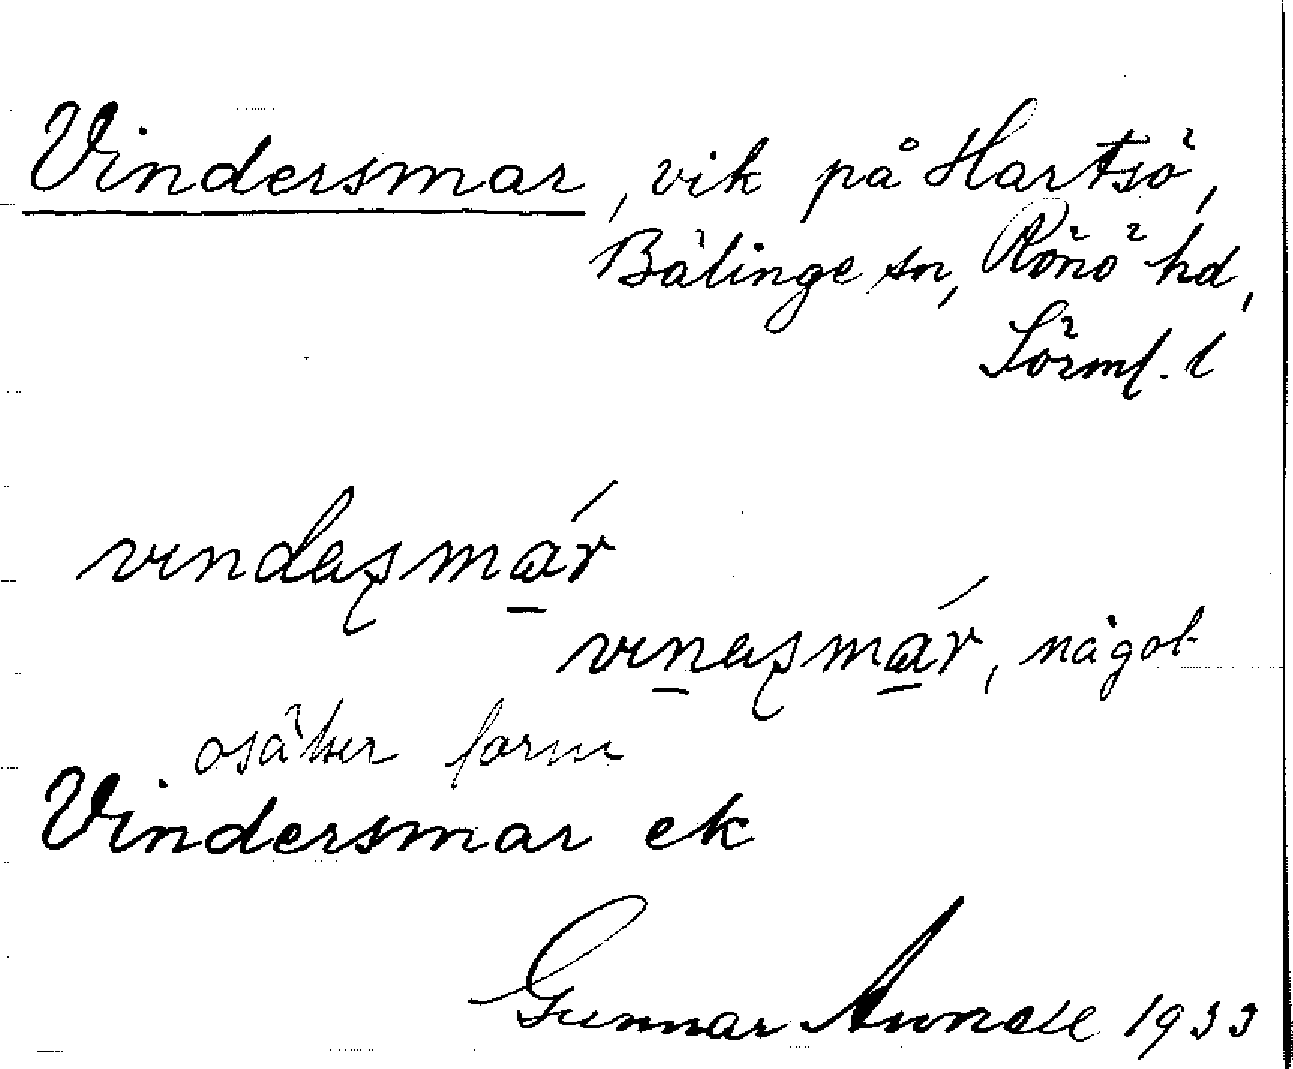 Vindersmar, vik på Hartsö,
Bälinge sn, Rönö hd,
Sörml. l
vındaʂmár
vınaʂmár, något
osäker form
Vindersmar ek
Gunnar 1933